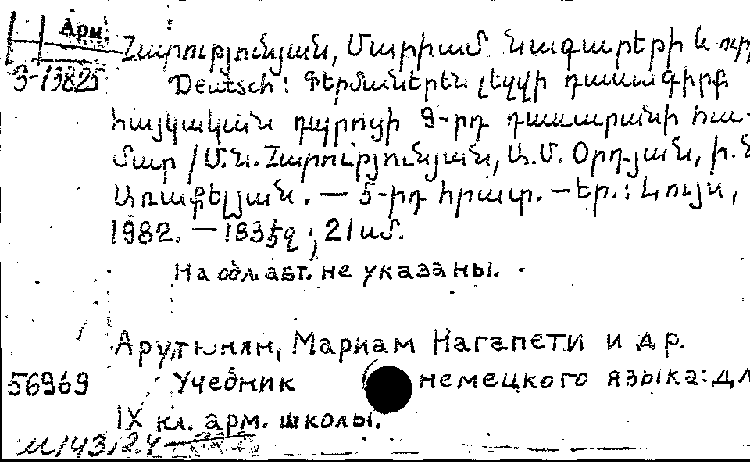 Арм.
Հարությունյան, Մարիամ Նագապետի և ուր
3-13825
Deutsch: Գերմաներեն լեզվի դասագիրք
հայկական դպրոցի 9-րդ դասարանի հա-
մար / Մ.Ն. Հարությունյան, Ա.Մ. Օրդյան, Ի.Ն
Առաքելյան. — 5-րդ հրատ. — Եր.: Լույս,
1982. — 183 էջ; 21 սմ.
На обл. авт. не указаны.
Арутюнян, Мариам Нагапети и др.
56969 Учебник немецкого языка: дл
IX кл. арм. школы.